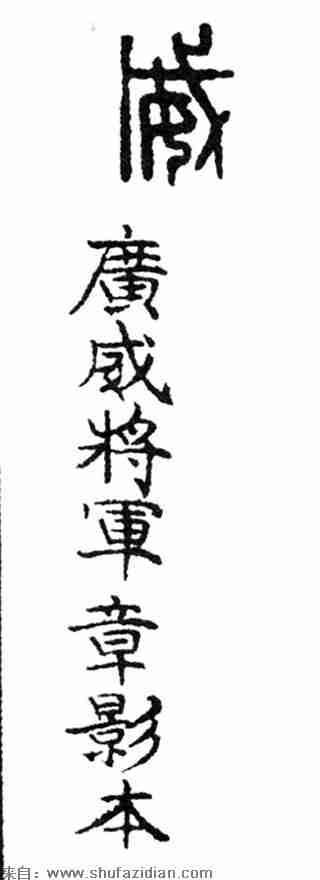 威
廣威將軍章影本
来自：www.shufazidian.com